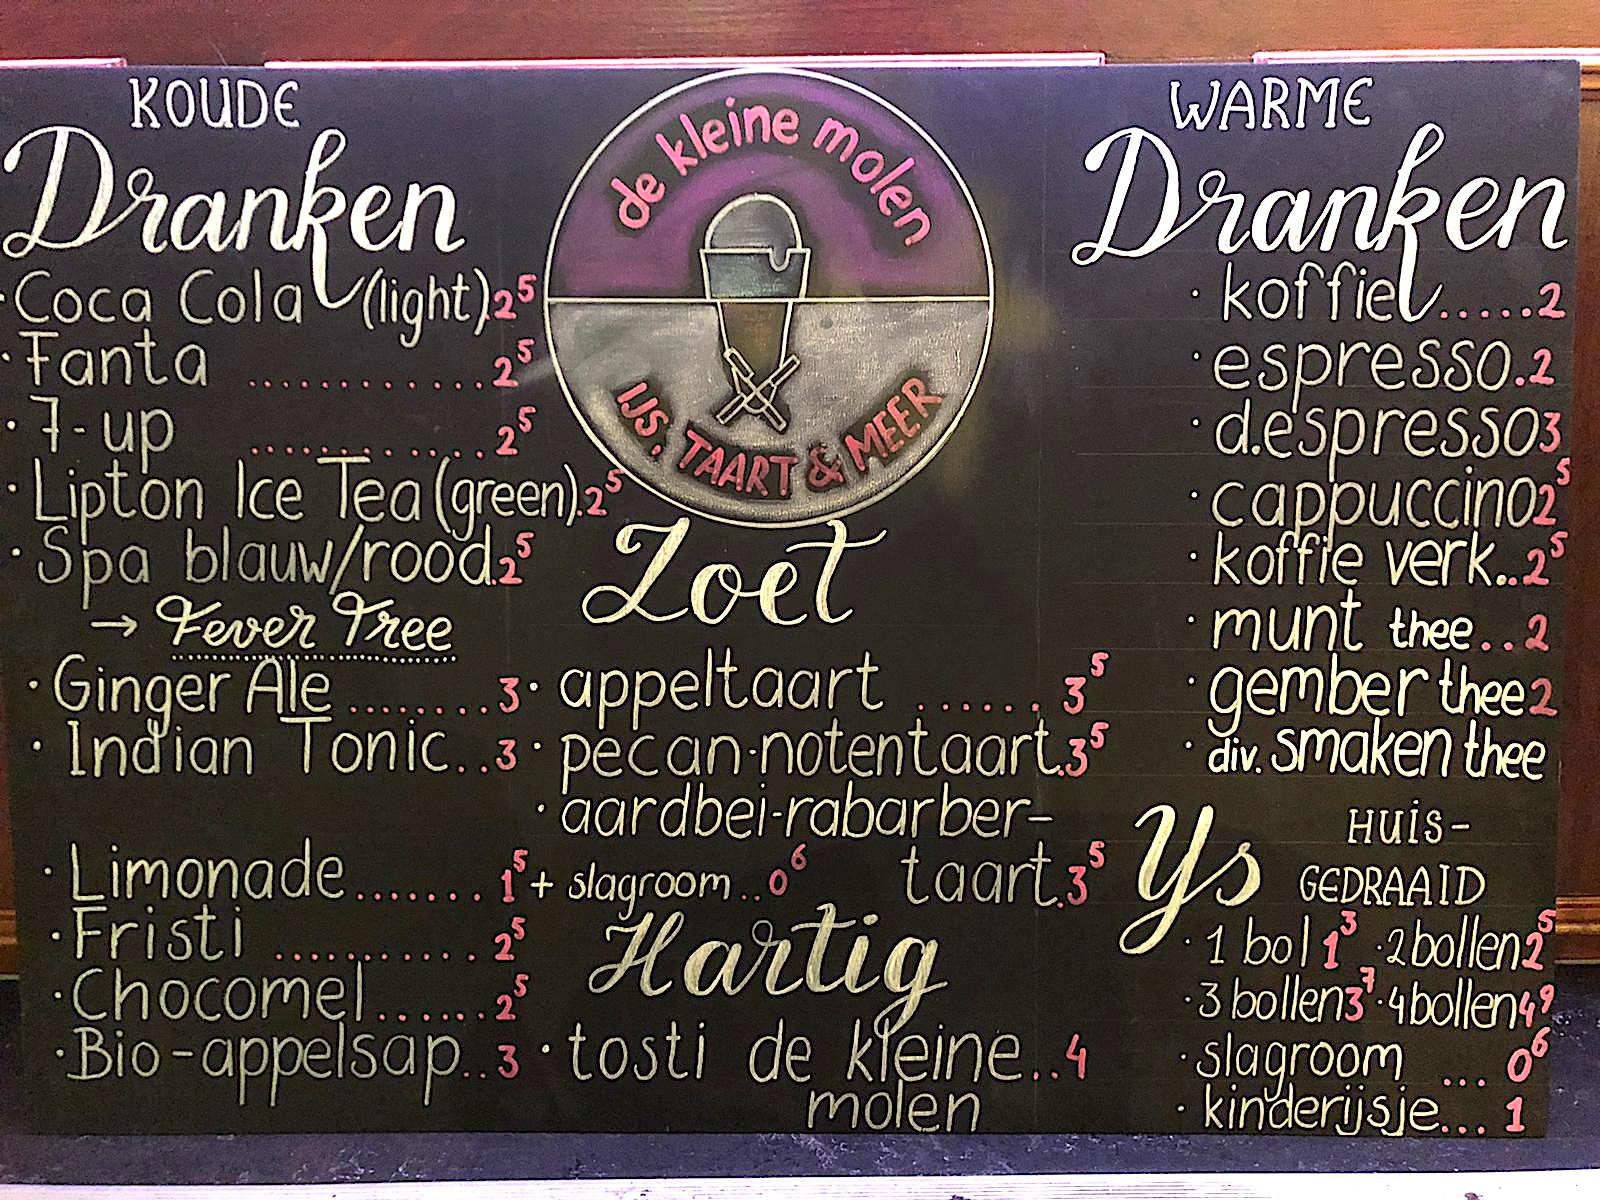 KOUDE
Dranken
· Coca Cola (light).2⁵
· Fanta .............2⁵
· 7-up ............2⁵
· Lipton Ice Tea (green).2⁵
· Spa blauw/rood.2⁵
→ Fever Tree
· Ginger Ale ........3
· Indian Tonic..3
· Limonade.......1⁵
· Fristi ...........2⁵
· Chocomel......2⁵
· Bio-appelsap..3
de kleine molen
IJS, TAART & MEER
Zoet
· appeltaart ......3⁵
· pecan-notentaart.3⁵
· aardbei-rabarber-
taart.3⁵
+ slagroom..0⁶
Hartig
· tosti de kleine..4
molen
WARME
Dranken
· koffie.....2
· espresso.2
· d.espresso3
· cappuccino2⁵
· koffie verk..2⁵
· munt thee..2
· gember thee2
· div. smaken thee
Ys HUIS-
GEDRAAID
· 1 bol 1³ · 2 bollen2⁵
· 3 bollen3⁷ · 4 bollen4⁹
· slagroom ... 0⁶
· kinderijsje... 1